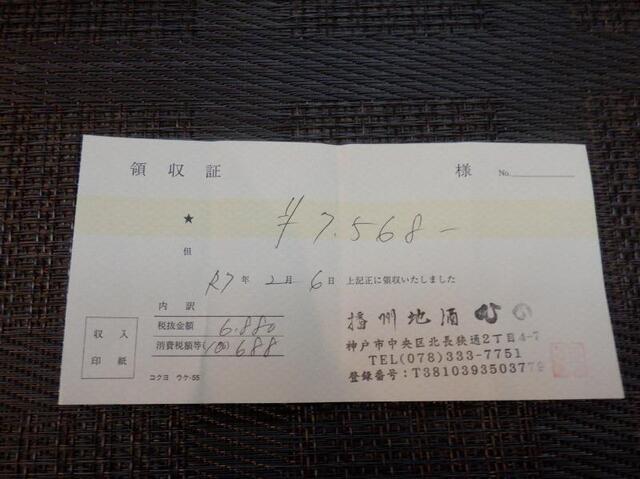 領収証 様 No.
★ ¥7.568-
但
R7年2月6日 上記正に領収いたしました
内訳
税抜金額 6.880
消費税額等(10%) 688
収入
印紙
コクヨ ウケ-55
播州地酒 ひの
神戸市中央区北長狭通2丁目4-7
TEL(078)333-7751
登録番号:T3810393503779